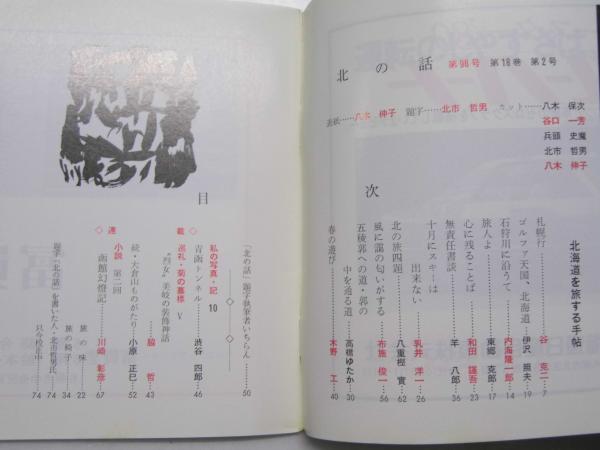 北の話 第98号 第18巻 第2号
表紙……八木 伸子 題字……北市 哲男 カット……八木 保次
谷口 一芳
兵頭 史魔
北市 哲男
八木 伸子
北海道を旅する手帖
目次
札幌行……谷 克二…7
ゴルファ天国、北海道……伊沢 照夫…19
石狩川に沿うて……内海隆一郎…14
旅人よ……東郷 克郎…17
心に残ることば……和田 謹吾…23
無責任書談……羊 八郎…36
十月にスキーは出来ない……乳井 洋一…26
北の旅四題……八重樫 實…62
風に謡の匂いがする……布施 俊一…56
五稜郭への道・郭の中を通る道……高橋ゆたか…30
春の遊び……木野 工…40
「北の話」題字執筆者いちらん……50
私の写真・記 10
青函トンネル……渋谷 四郎…46
◇連載◇
巡礼・菊の墓標 Ⅴ
“烈女”美岐の装飾神話……脇 哲…43
続・大倉山ものがたり……小原 正巳…52
小説 第二回
函館幻燈記……川崎 彰彦…67
旅の味……22
旅の椅子……34
題字「北の話」を書いた人・北市哲男氏……74
只今校正中……74